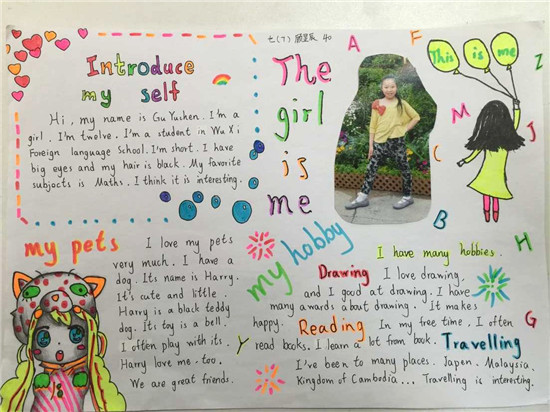 七(7) 40
Introduce
my self
Hi, my name is Gu Yuchen. I'm a
girl. I'm twelve. I'm a student in Wu Xi
Foreign language School. I'm short. I have
big eyes and my hair is black. My favorite
subjects is Maths. I think it is interesting.
The
girl
is
me
A
F
This is me
Z
M
J
C
B
H
my pets
I love my pets
very much. I have a
dog. Its name is Harry.
It's cute and little.
Harry is a black teddy
dog. Its toy is a bell.
I often play with its.
Harry love me too.
We are great friends.
Y
my hobby
I have many hobbies.
Drawing I love drawing,
and I good at drawing. I have
many awards about drawing. It makes
happy. Reading In my free time. I often
G
read books. I learn a lot from book. Travelling
I've been to many places. Japen. Malaysia.
Kingdom of Cambodia... Travelling is interesting.